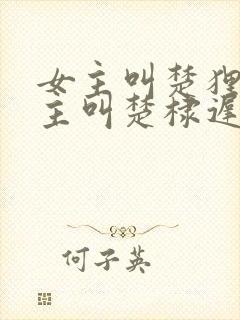 女主叫楚狸
主叫楚棣遲
何子英